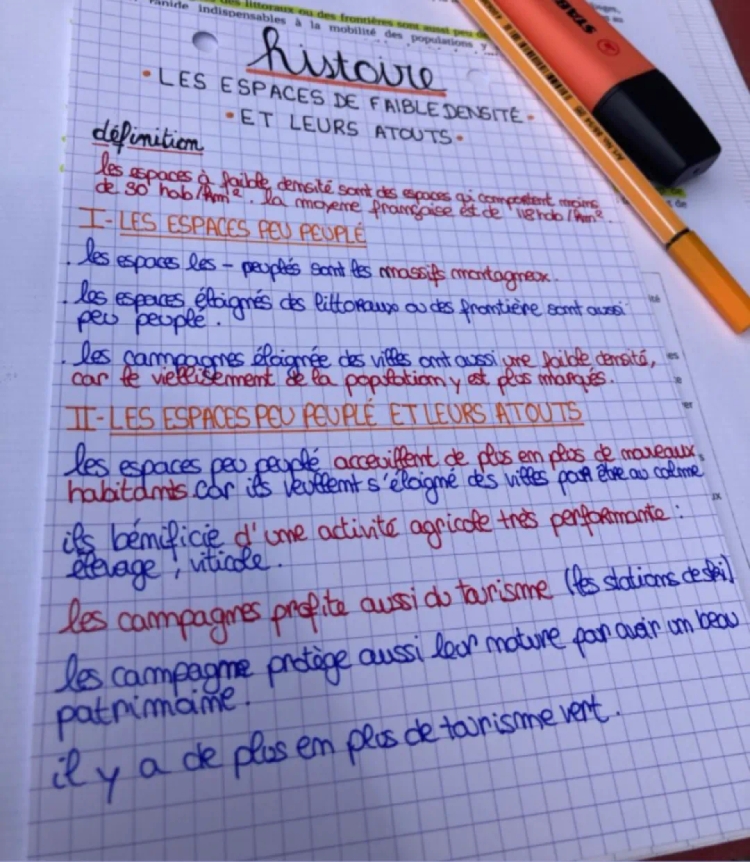 des littoraux ou des frontières sont aussi peu de
indispensables à la mobilité des populations y
histoire
• LES ESPACES DE FAIBLE DENSITÉ •
• ET LEURS ATOUTS •
définition
les espaces à faible densité sont des espaces qi comportent moins
de 30 hab/km². la moyenne française est de 118 hab/km².
I - LES ESPACES PEU PEUPLÉ
. les espaces les - peuplés sont les massifs montagneux.
. les espaces éloignés des littoraux ou des frontière sont aussi
peu peuplé.
. les campagnes éloignée des villes ont aussi une faible densité,
car le viellisement de la population y est plus marqués.
II - LES ESPACES PEU PEUPLÉ ET LEURS ATOUTS
les espaces peu peuplé acceuillent de plus en plus de nouveaux
habitants car ils veullent s'éloigné des villes pour être au calme
ils bénificie d'une activité agricole très performante :
élevage, viticole.
les campagnes profite aussi du tourisme (les stations de ski)
les campagne protège aussi leur nature par avoir un beau
patrimoine.
il y a de plus en plus de tourisme vert.
STAB